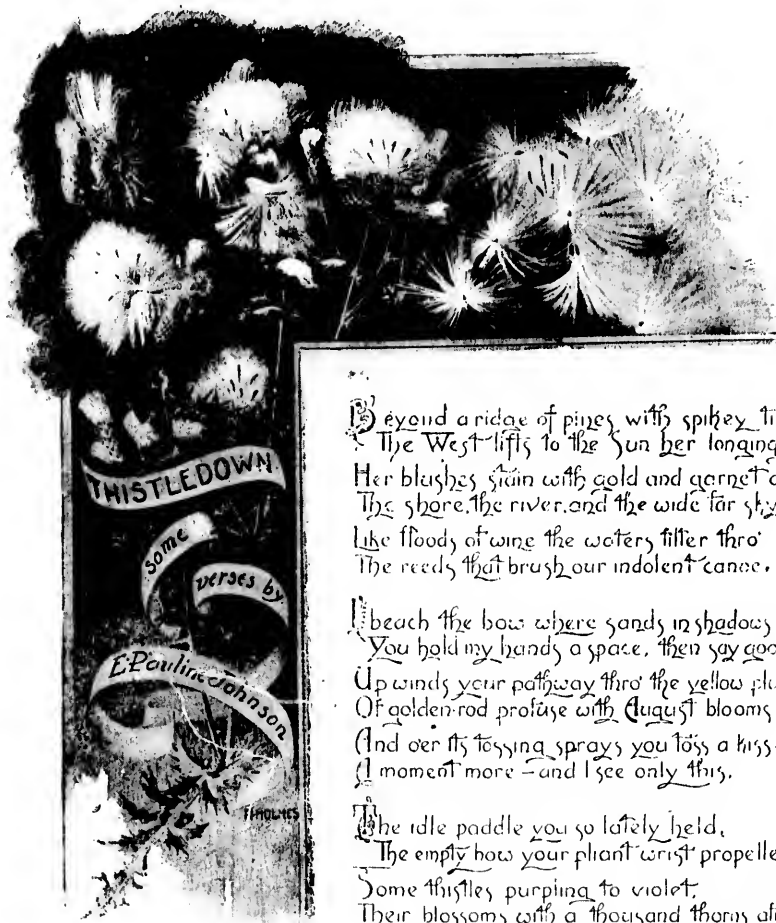 THISTLEDOWN.
some
verses by
E. Pauline Johnson
F. HOLMES
Beyond a ridge of pines with spikey ti
The West lifts to the Sun her longing
Her blushes stain with gold and garnet
The shore, the river, and the wide far sky
Like floods of wine the waters filter thro'
The reeds that brush our indolent canoe.
I beach the bow where sands in shadows
You hold my hands a space, then say goo
Up winds your pathway thro' the yellow pl
Of golden-rod profuse with August blooms
And o'er its tossing sprays you toss a kiss
A moment more – and I see only this.
The idle paddle you so lately held,
The empty bow your pliant wrist propelle
Some thistles purpling to violet,
Their blossoms with a thousand thorns af